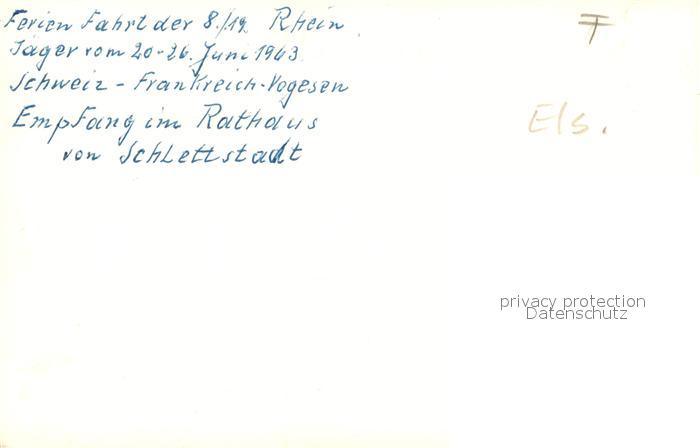 Ferien Fahrt der 8./19. Rhein.
Jäger vom 20-26. Juni 1963
Schweiz - Frankreich-Vogesen
Empfang im Rathaus
von Schlettstadt
Els.
privacy protection
Datenschutz